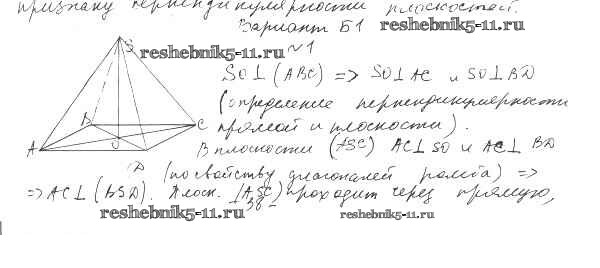 признаку перпендикулярности плоскостей.
Вариант Б1 reshebnik5-11.ru
reshebnik5-11.ru №1
S
SO⊥(ABC) => SO⊥AC и SO⊥BD
(определение перпендикулярности
B
C прямой и плоскости).
A O В плоскости (ASC) AC⊥SO и AC⊥BD
D (по свойству диагоналей ромба) =>
=> AC⊥(BSD). Плоск. (ASC) проходит через прямую,
- 38 -
reshebnik5-11.ru reshebnik5-11.ru